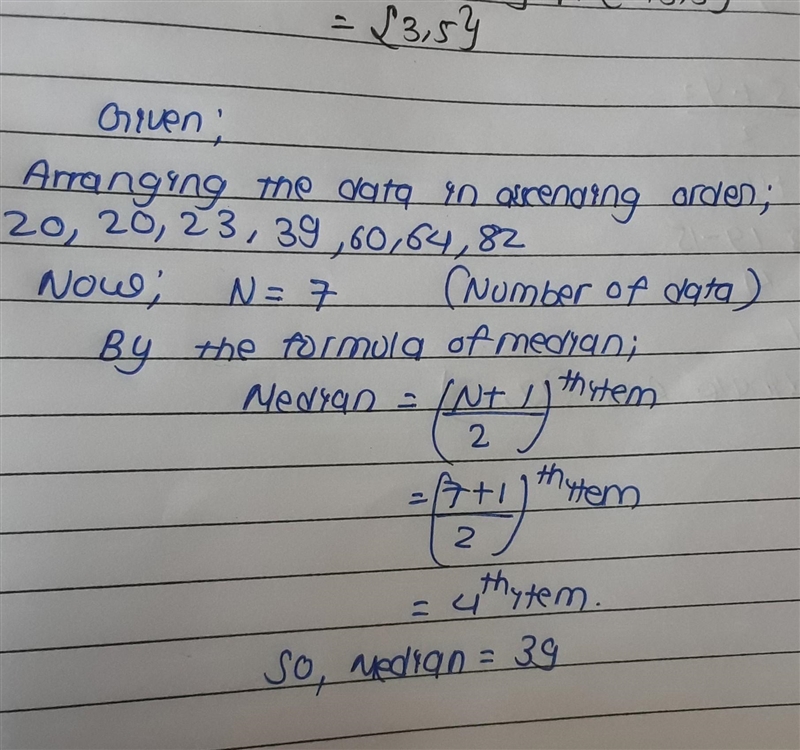 = {3,5}
Given;
Arranging the data in ascending order;
20, 20, 23, 39, 60, 64, 82
Now; N = 7 (Number of data)
By the formula of median;
Median = (N+1/2)th item
= (7+1/2)th item
= 4th item.
So, Median = 39